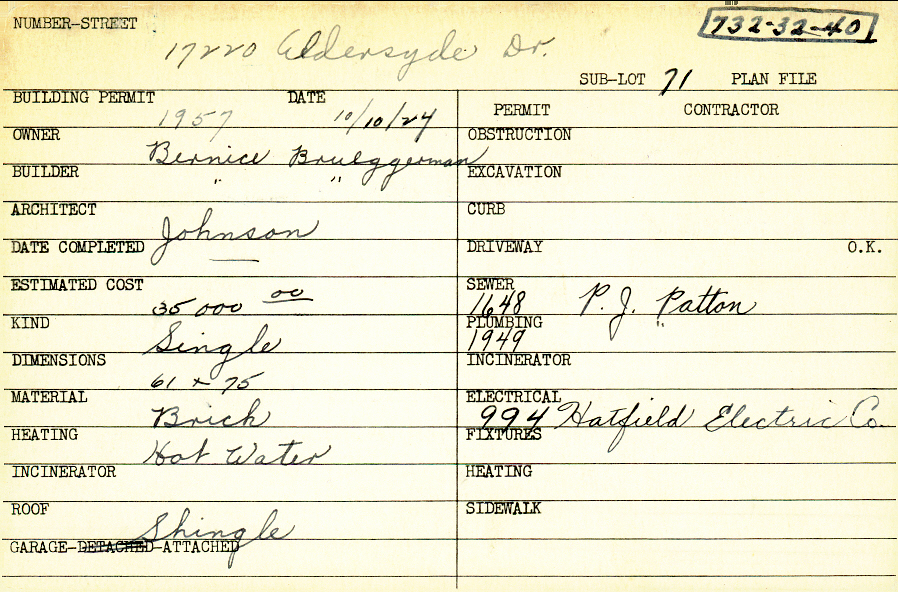 NUMBER-STREET 17220 Aldersyde Dr. 732-32-40
SUB-LOT 71 PLAN FILE
BUILDING PERMIT 1957 DATE 10/10/24
PERMIT CONTRACTOR
OWNER Bernice Brueggerman
BUILDER " "
ARCHITECT Johnson
DATE COMPLETED —
ESTIMATED COST 35 000 00
KIND Single
DIMENSIONS 61 x 75
MATERIAL Brick
HEATING Hot Water
INCINERATOR
ROOF Shingle
GARAGE-DETACHED-ATTACHED
OBSTRUCTION
EXCAVATION
CURB
DRIVEWAY O.K.
SEWER 1648 P. J. Patton
PLUMBING 1949 "
INCINERATOR
ELECTRICAL 994 Hatfield Electric Co.
FIXTURES
HEATING
SIDEWALK